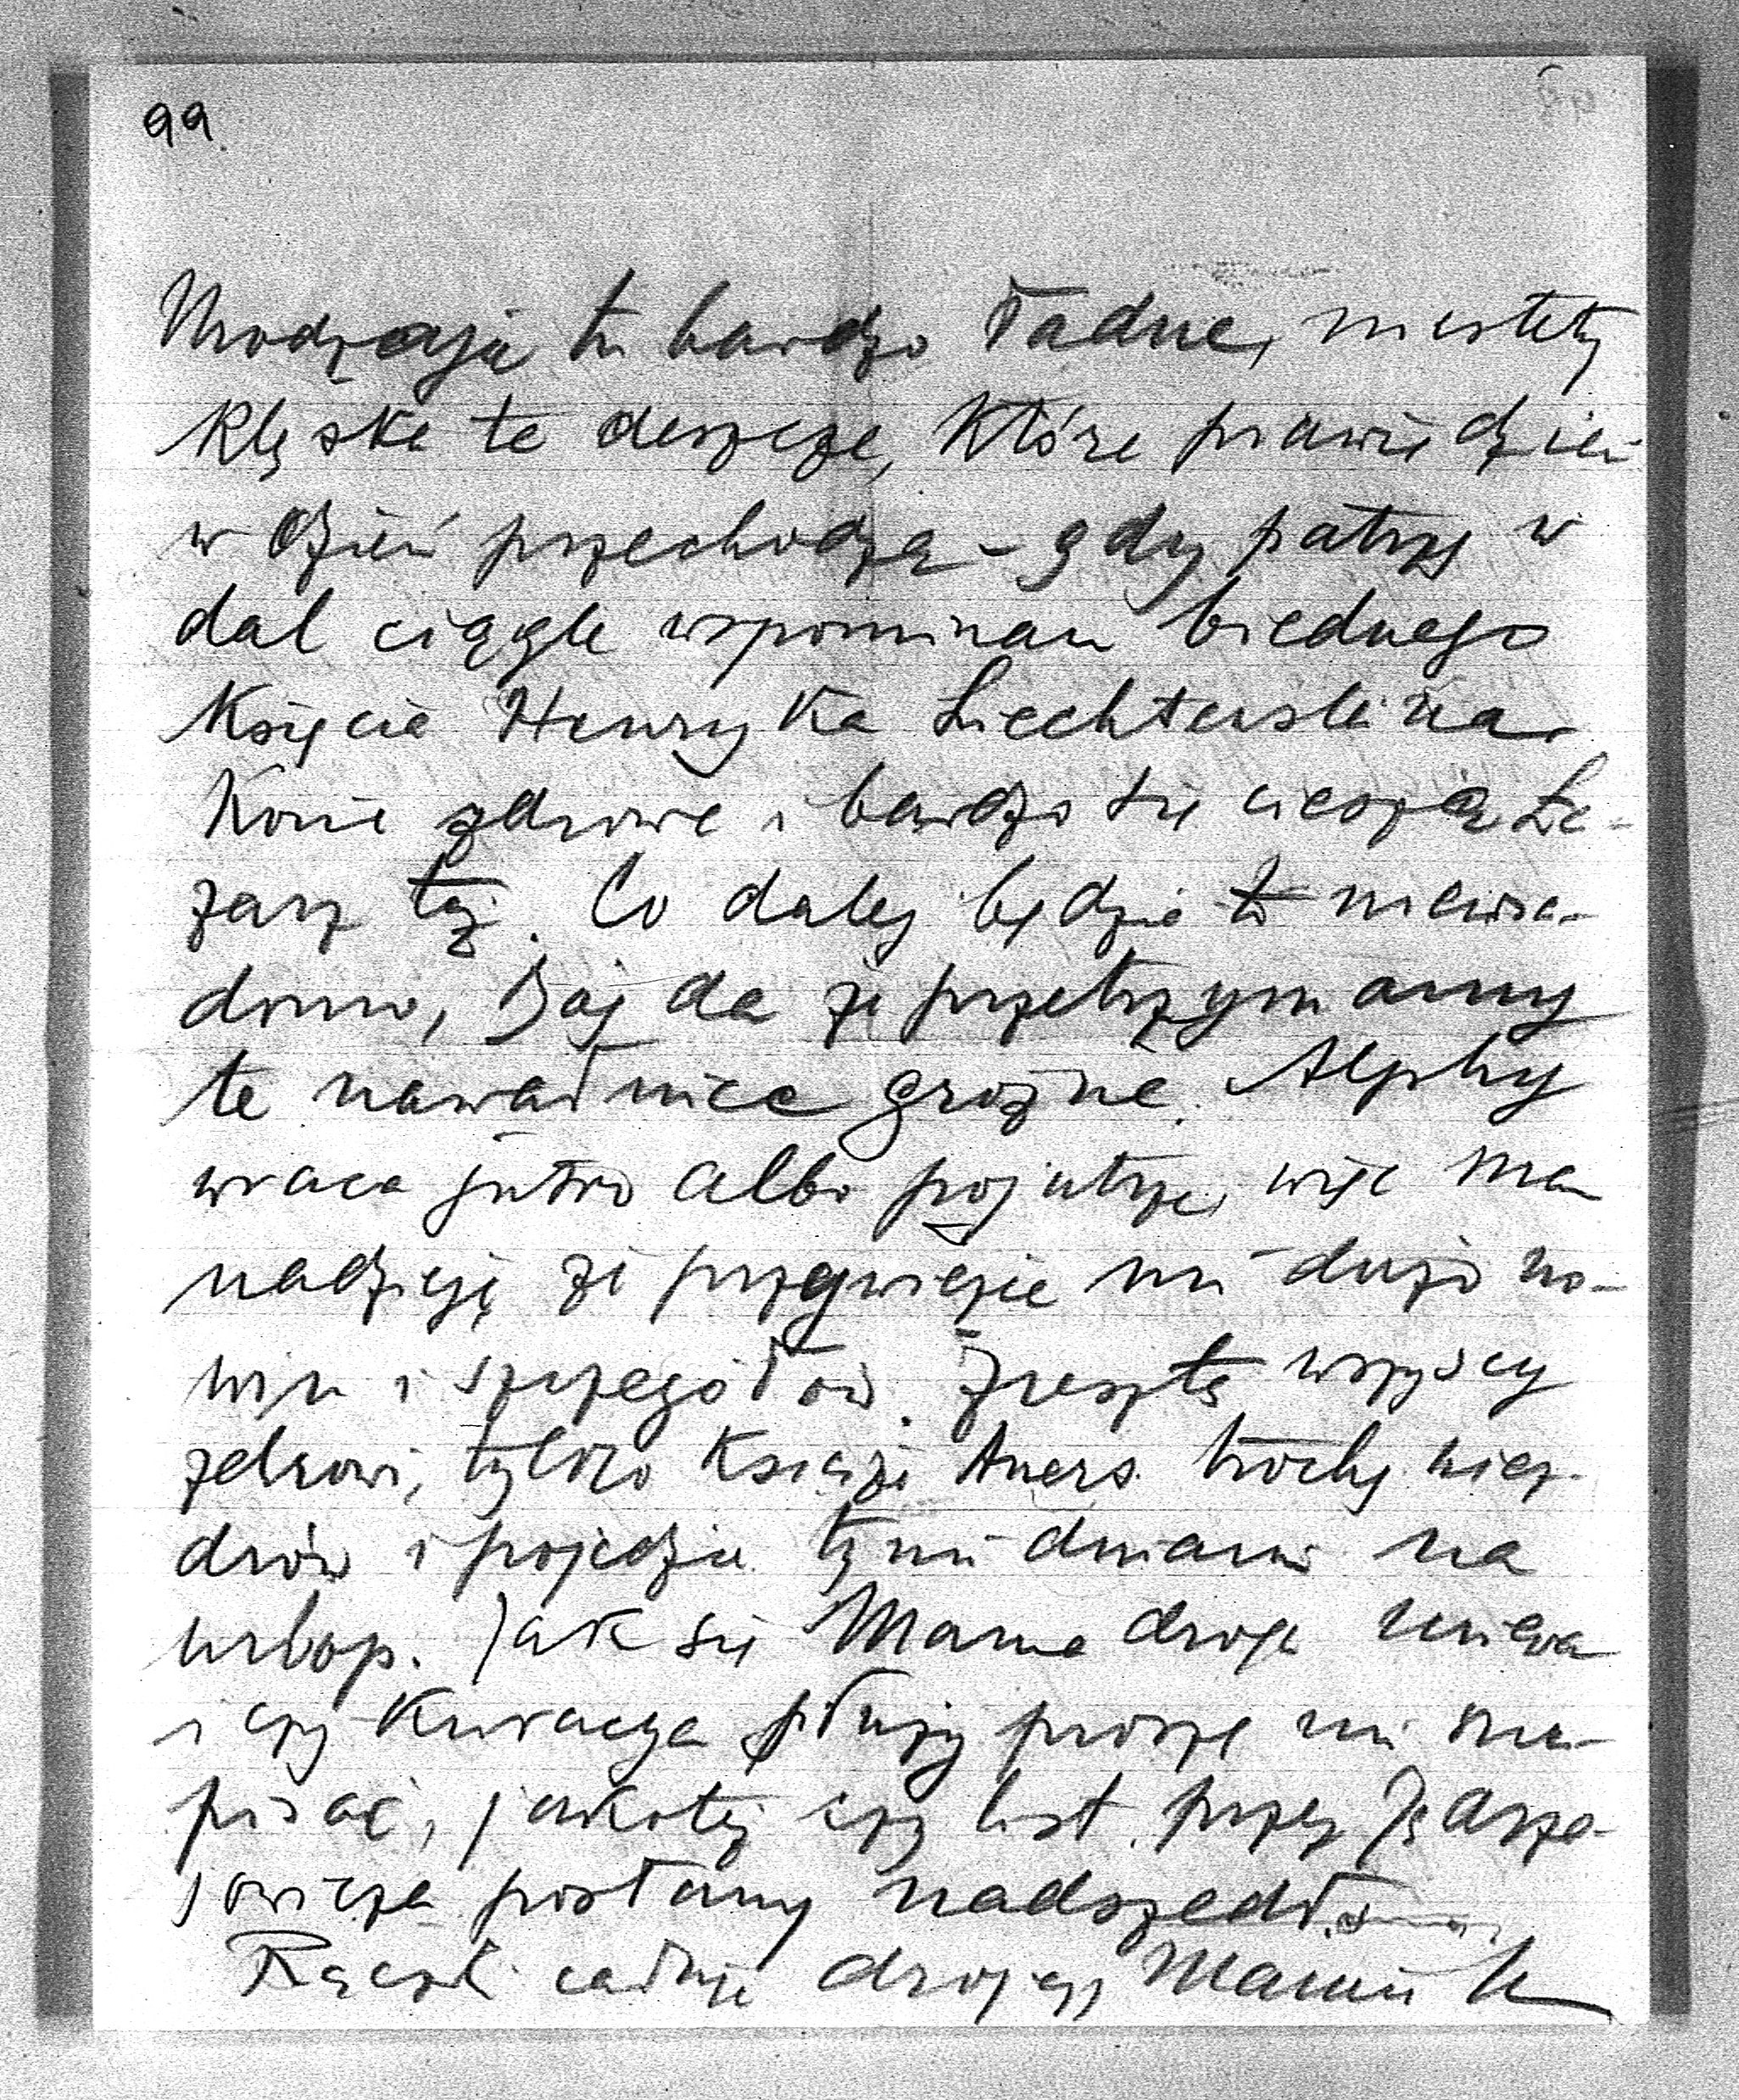 99.
Urodzaje tu bardzo ładne, niestety
klęska te deszcze, które prawie dzień
w dzień przechodzą - gdy patrzę w
dal ciągle wspominam biednego
Księcia Henryka Liechtensteina.
Konie zdrowe i bardzo się cieszą Le-
żarz też. Co dalej będzie to niewia-
domo, Bóg da że przetrzymamy
te nawałnice groźne. Alphy
wraca jutro albo pojutrze, więc mam
nadzieję że przywiezie mi dużo no-
win i szczegółów. Zresztą wszyscy
zdrowi, tylko Książe Auers. trochę niez-
drów i pojedzie tymi dniami na
urlop. Jak się Mama droga miewa
i czy kuracya służy proszę mi na-
pisać, jakoteż czy list przez
posłany nadszedł.
Rączki całuję drogiej Mamie